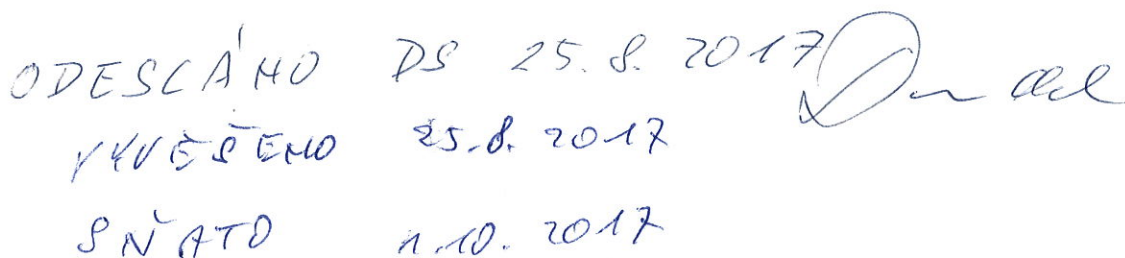 ODESLÁNO DS 25.8.2017
VYVĚŠENO 25.8.2017
SŇATO 1.10.2017